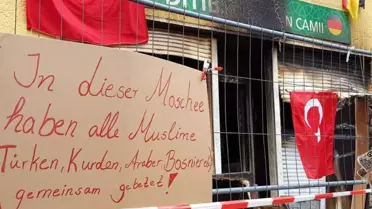 CAMII
In dieser Moschee
haben alle Muslime
Türken, Kurden, Araber, Bosnier etc.
gemeinsam gebetet!